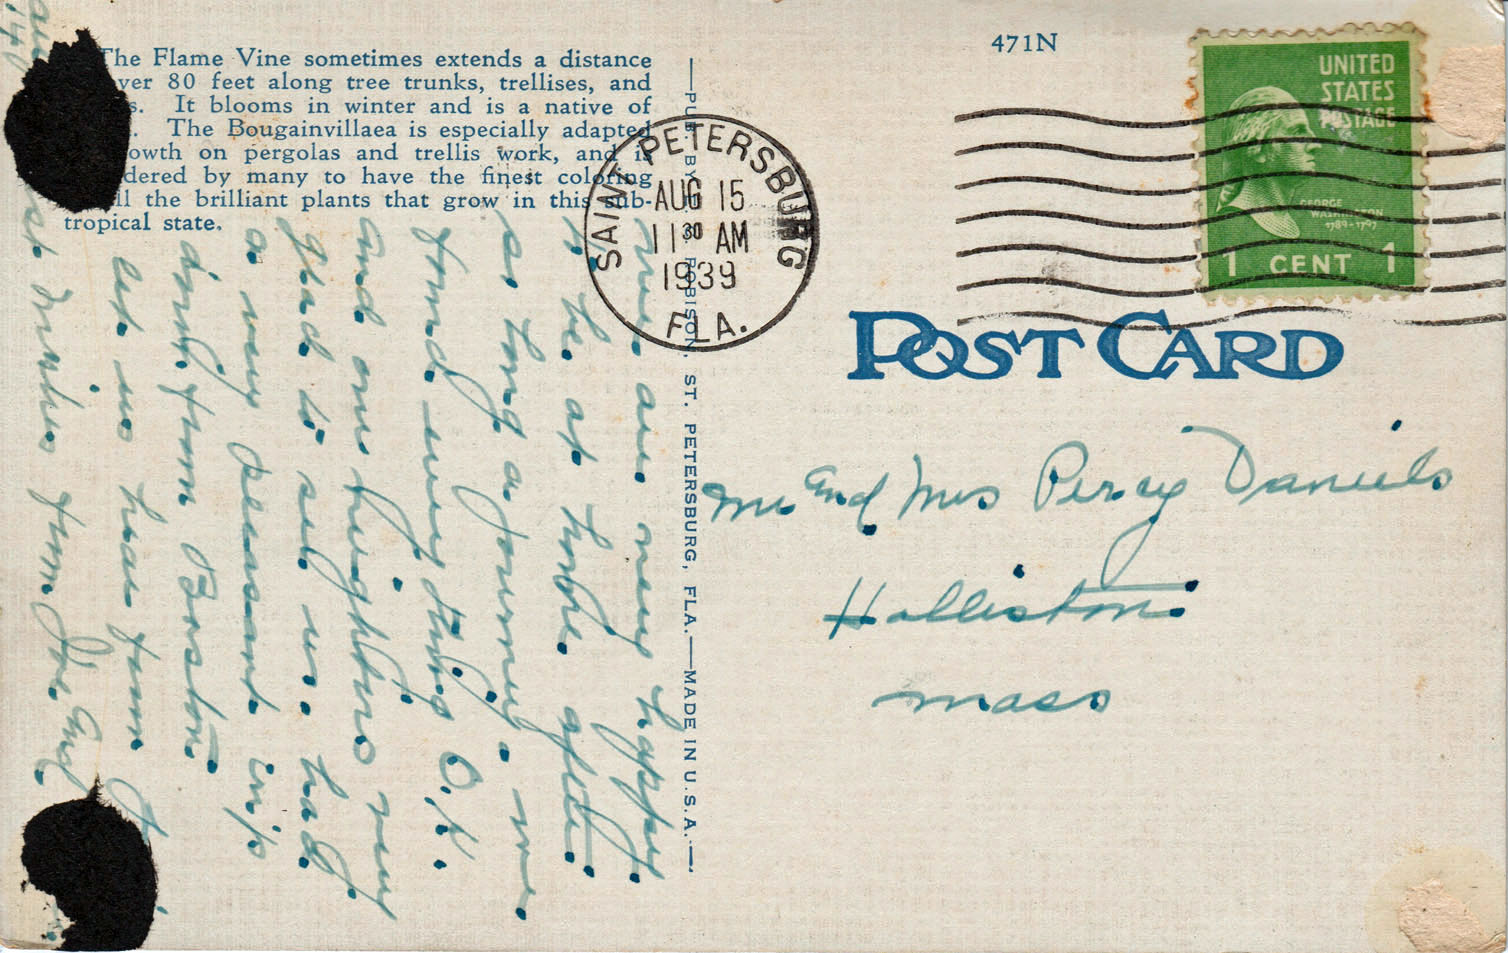 The Flame Vine sometimes extends a distance
over 80 feet along tree trunks, trellises, and
It blooms in winter and is a native of
The Bougainvillaea is especially adapted
growth on pergolas and trellis work, and is
by many to have the finest coloring
all the brilliant plants that grow in this sub-
tropical state.
471N
UNITED
STATES
POSTAGE
GEORGE
WASHINGTON
1789-1797
1 CENT 1
SAINT PETERSBURG
AUG 15
11 30 AM
1939
FLA.
POST CARD
PUB. BY ROBISON, ST. PETERSBURG, FLA.—MADE IN U.S.A.
Mr and Mrs Percy Daniels
Holliston
Mass
are very happy
to be at home after
so long a journey. we
found every thing O.K.
and our neighbors very
glad to see us. had
a very pleasant trip
down from Boston.
Let us hear from
wishes from Joe and